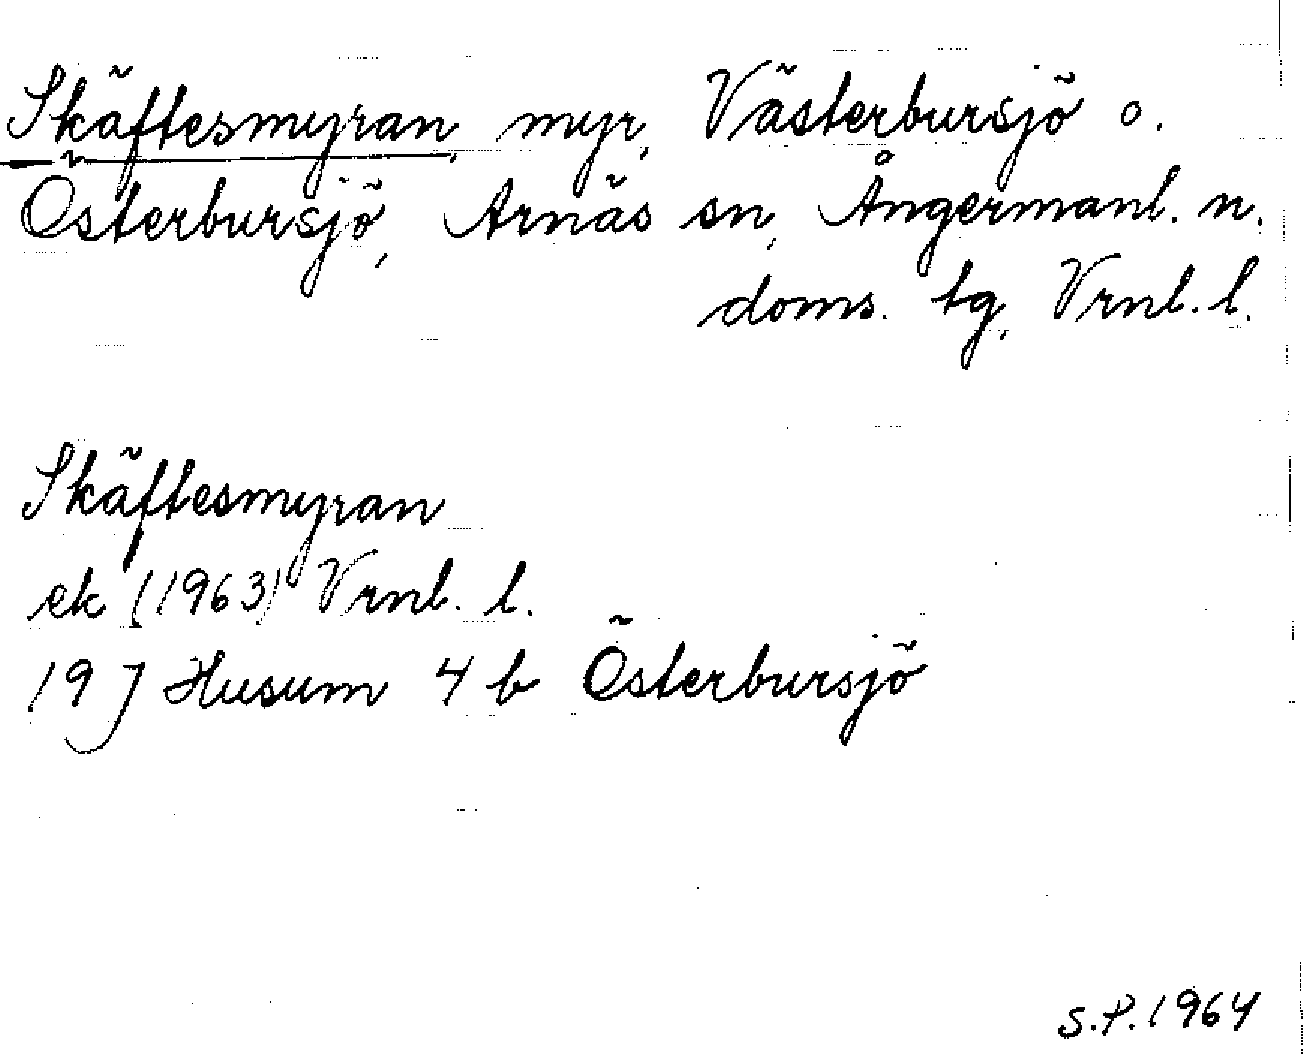 Skäftesmyran, myr, Västerbursjö o.
Österbursjö, Arnäs sn, Ångermanl. n.
doms. tg, Vrnl. l.
Skäftesmyran
ek (1963) Vrnl. l.
19 J Husum 4 b Österbursjö
S.P. 1964